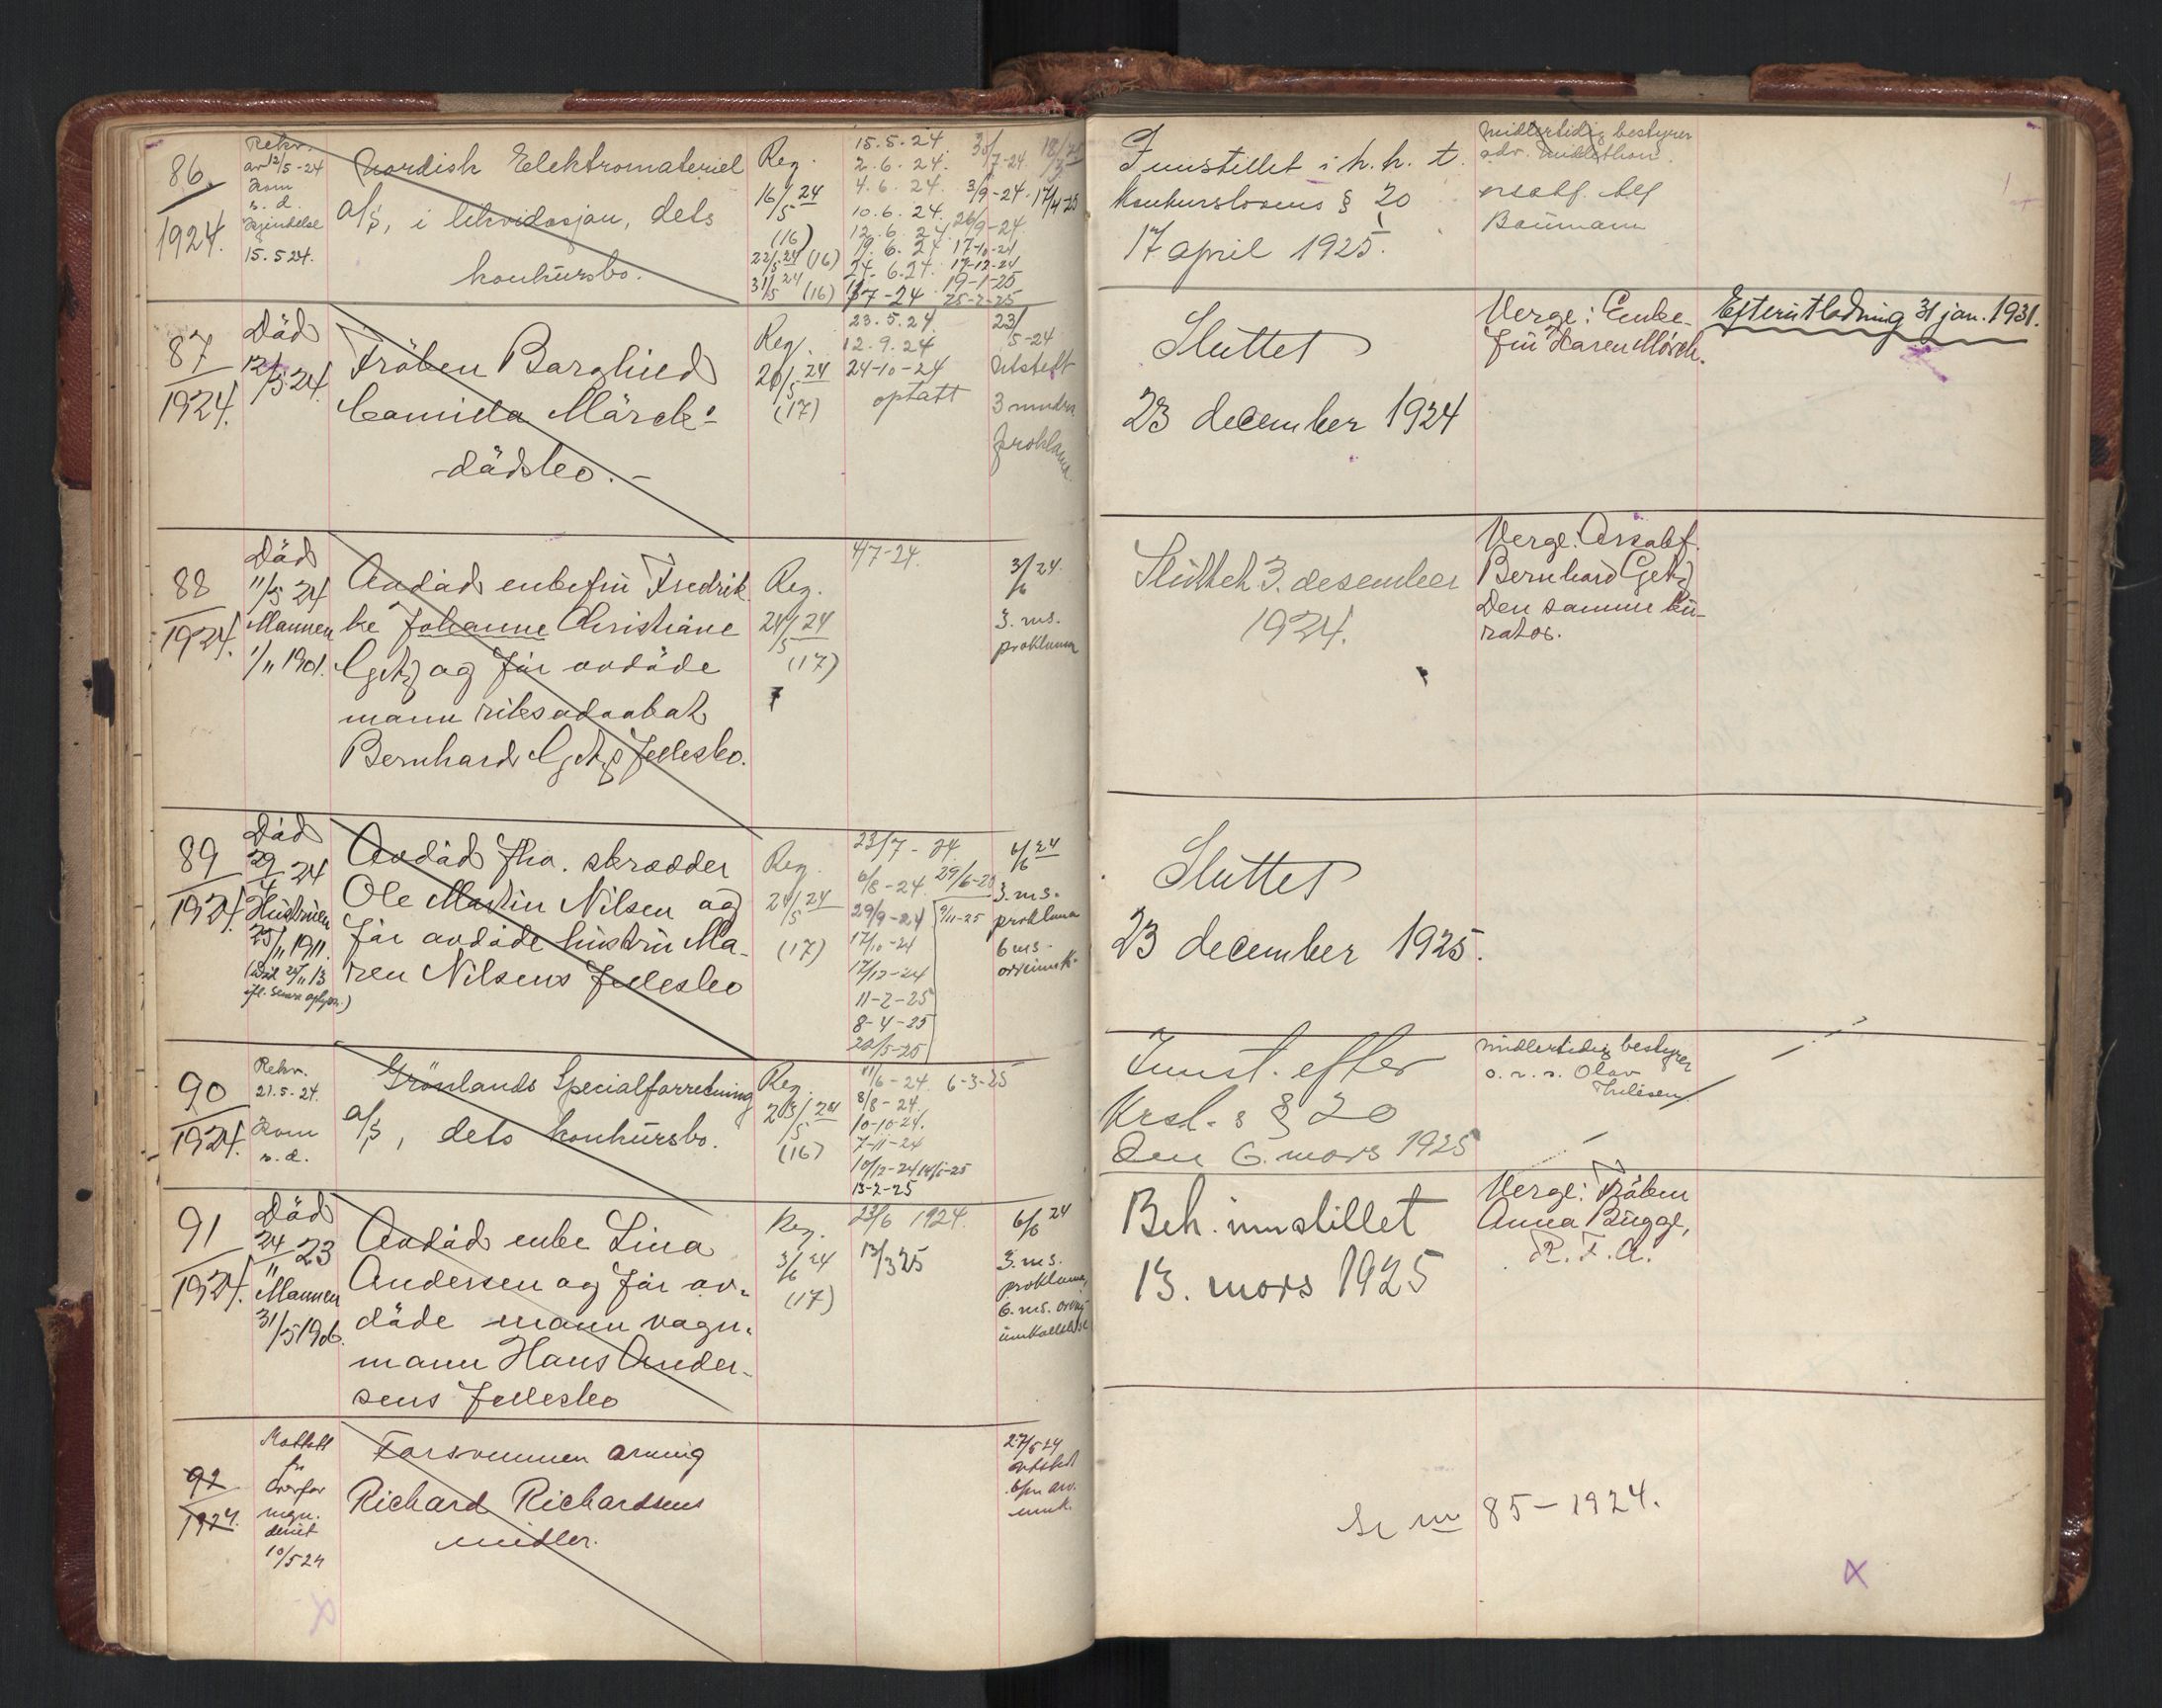 86
1924.
Rekv.
av 12/5-24
Kom
s. d.
Kjendelse
15.5 24.
Nordisk Elektromateriel
a/s, i likvidasjon, dets
konkursbo.
Reg.
16/5 24
(16)
22/5 24 (16)
31/5 24 (16)
15.5.24.
2.6.24.
4.6.24.
10.6.24.
12.6.24
19.6.24
24.6.24.
7-24
30/7-24
3/9-24.
26/9-24.
17-10-24
17-12-24
19-1-25
25-2-25
17/4-25
Innstillet i h. h. t.
Konkurslovens § 20
17 april 1925.
Midlertidig bestyrer
adv. Middelthon.
Baumann
87
1924.
Död
12/5 24.
Fröken Borghild
Camilla Mörck's
dödsbo.-
Reg.
20/5 24
(17)
23.5.24.
12.9.24
24-10-24
optatt
23/5-24
Utstedt
3 mndrs
proklama
Sluttet
23 december 1924
Verge: Enke-
fru Karen Mörch.
Efterutlodning 31 jan. 1931.
88
1924.
Död
11/5 24
Mannen
1/11 1901.
Avdöd enkefru Fredrik-
ke Johanne Christiane
Getz og för avdöde
mann riksadvokat
Bernhard Getz's fellesbo.
Reg.
24/5 24
(17)
4/7-24.
3/6 24.
3. ms.
proklama
Sluttet 3. desember
1924.
Verge: Orsakf.
Bernhard Getz
Den samme ku-
rator.
89
1924.
Död
29/4 24
Hustruen
25/11 1911.
Avdöd fhv. skrædder
Ole Martin Nilsen og
för avdöde hustru Ma-
ren Nilsens fellesbo
Reg.
24/5 24
(17)
23/7-24.
6/8-24.
29/9-24
17/10-24
17/12-24
11-2-25
8-4-25
20/5-25
29/6-25
9/11-25
6/6 24
3. ms.
proklama
6 ms.
Sluttet
23 december 1925.
90
1924.
Rekv.
21.5-24.
Kom
s. d.
Grönlands Specialforretning
a/s, dets konkursbo.
Reg.
23/5 24
(16)
11/6-24. 6-3-25
8/8-24.
10-10-24.
7-11-24
10/12-24 14/1-25
13-2-25
Innst. efter
Krsl. s § 20
den 6. mars 1925
Midlertidig bestyrer
o. r. s. Olav
Thilesen
91
1924.
Död
24/11 23
Mannen
31/5 1906.
Avdöd enke Lina
Andersen og för av-
döde mann vogn-
mann Hans Ander-
sens fellesbo
Reg.
3/6 24
(17)
23/6 1924.
13/3 25
6/6 24
3. ms.
proklama,
6. ms. arving-
innkallelse
Beh. innstillet
13. mars 1925
Verge: Fröken
Anna Bugge,
R. F. A.
92
1924.
Mottatt
fra
Overfor
mynderiet
10/5 24
Forsvunnen arving
Richard Richardsens
midler.
27/5 24
utstedt
6/m arv.
innk.
Se nr 85-1924.
X
X